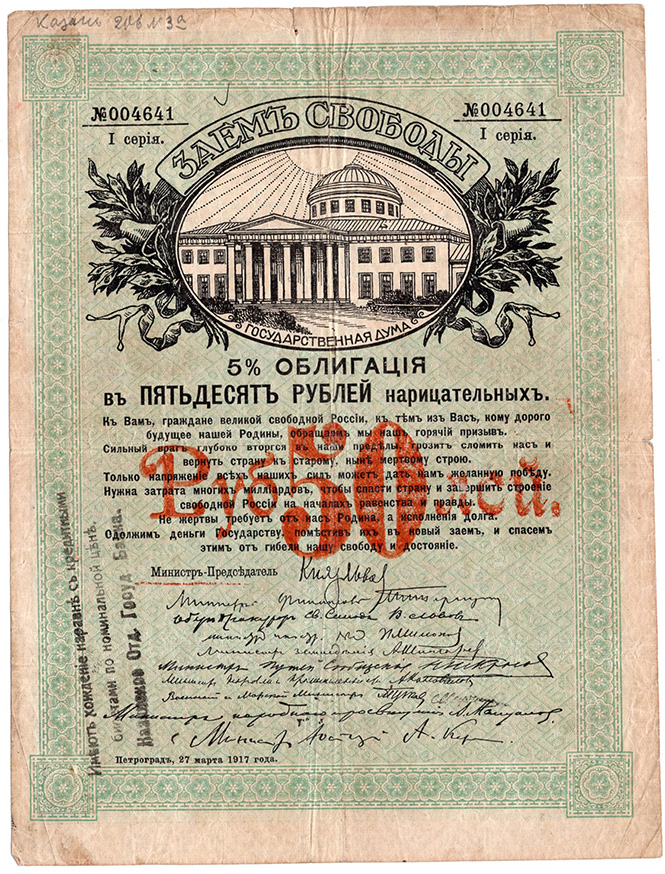 Казань
№004641
I серія.
№004641
I серія.
ЗАЕМЪ СВОБОДЫ
ГОСУДАРСТВЕННАЯ ДУМА
5% ОБЛИГАЦІЯ
въ ПЯТЬДЕСЯТЪ РУБЛЕЙ нарицательныхъ.
Къ Вамъ, граждане великой свободной Россіи, къ тѣмъ изъ Васъ, кому дорого
будущее нашей Родины, обращаемъ мы нашъ горячій призывъ.
Сильный врагъ глубоко вторгся въ наши предѣлы, грозитъ сломить насъ и
вернуть страну къ старому, нынѣ мертвому строю.
Только напряженіе всѣхъ нашихъ силъ можетъ дать намъ желанную побѣду.
Нужна затрата многихъ милліардовъ, чтобы спасти страну и завершить строеніе
свободной Россіи на началахъ равенства и правды.
Не жертвы требуетъ отъ насъ Родина, а исполненія долга.
Одолжимъ деньги Государству, помѣстивъ ихъ въ новый заемъ, и спасемъ
этимъ отъ гибели нашу свободу и достояніе.
50
Рублей.
Министръ-Предсѣдатель Князь Львов
Министръ Финансовъ Терещенко
Оберъ Прокуроръ Св. Синода В. Львовъ
П. Милюков
Министръ земледѣлія А. Шингаревъ
Министръ Путей Сообщенія Н. Некрасов
Министръ торговли и промышленности А. Коновалов
Военный и Морской Министръ А. Гучков
Министръ народнаго просвещенія А. Мануйлов
Министръ Юстиціи А. Кер
Петроградъ, 27 марта 1917 года.
Имеютъ хожденіе наравнѣ съ кредитными
билетами по номинальной цѣнѣ.
Казанское Отд. Госуд Банка.